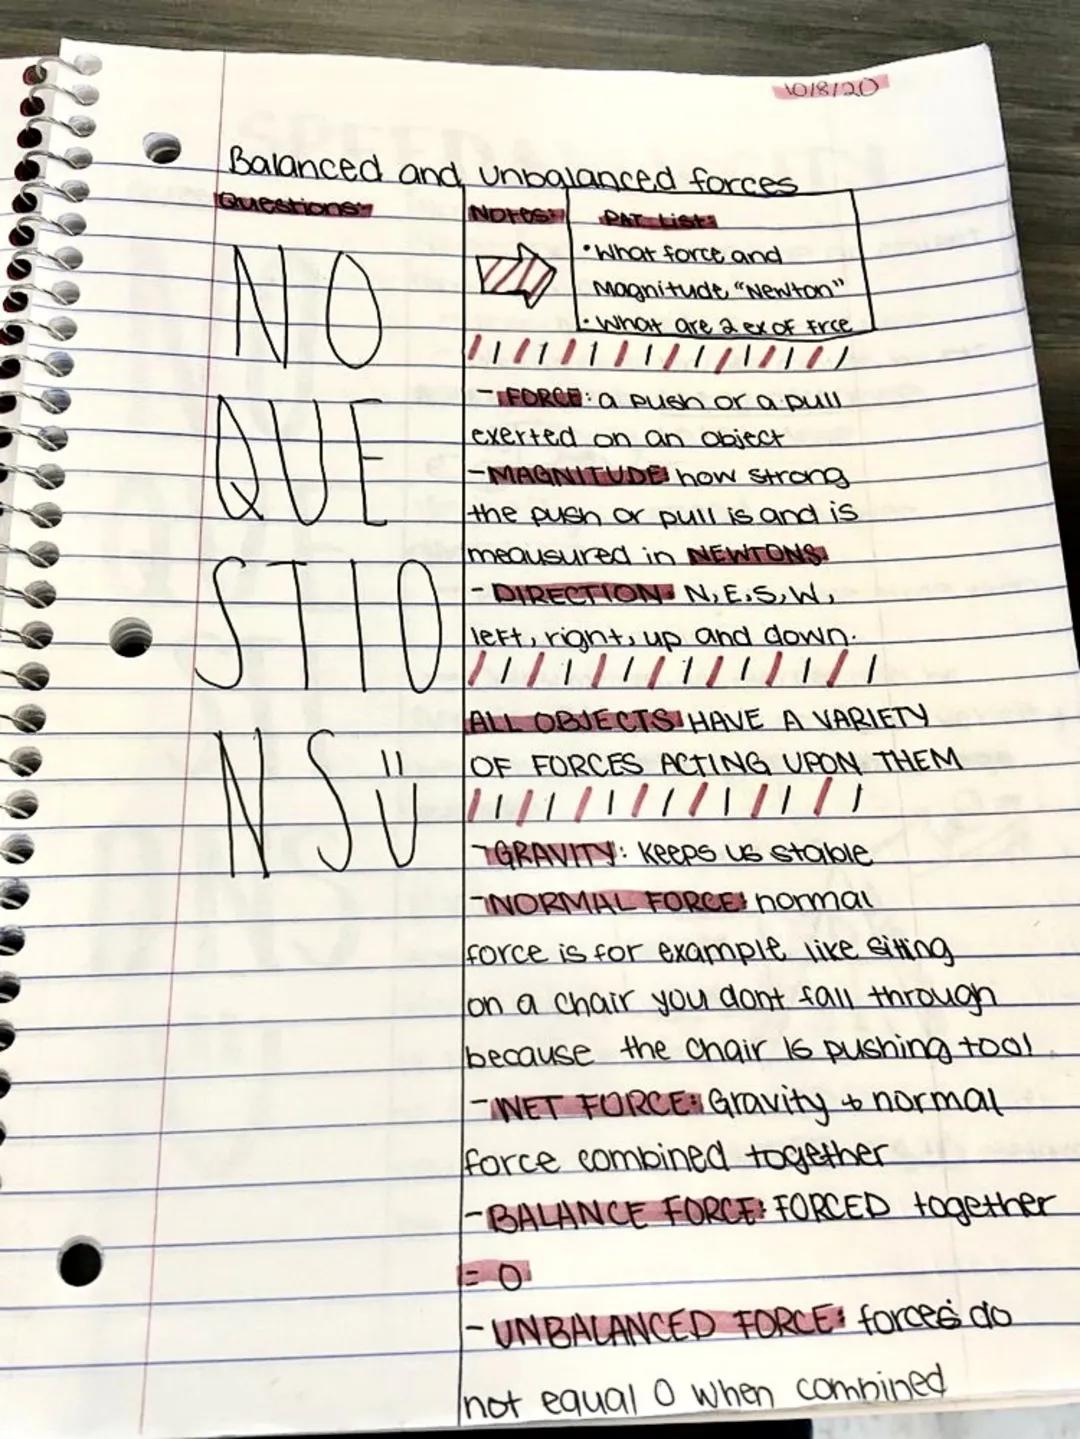 10/8/20
Balanced and unbalanced forces
Questions:
NO
QUE
STIO
NS Ü
Notes:
PAT List:
• What force and
Magnitude "Newton"
• What are 2 ex of frce
- FORCE: a push or a pull
exerted on an object
- MAGNITUDE: how strong
the push or pull is and is
meausured in NEWTONS.
- DIRECTION: N, E, S, W,
left, right, up and down.
ALL OBJECTS HAVE A VARIETY
OF FORCES ACTING UPON THEM
- GRAVITY: Keeps us stable
- NORMAL FORCE: normal
force is for example like siting
on a chair you dont fall through
because the chair is pushing too!
- NET FORCE: Gravity + normal
force combined together
- BALANCE FORCE: FORCED together
= 0
- UNBALANCED FORCE: forces do
not equal 0 when combined